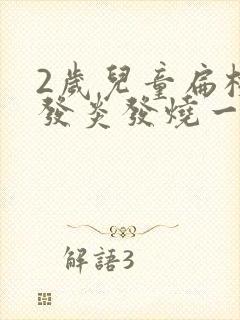 2歲兒童扁桃
發炎發燒一
解語3